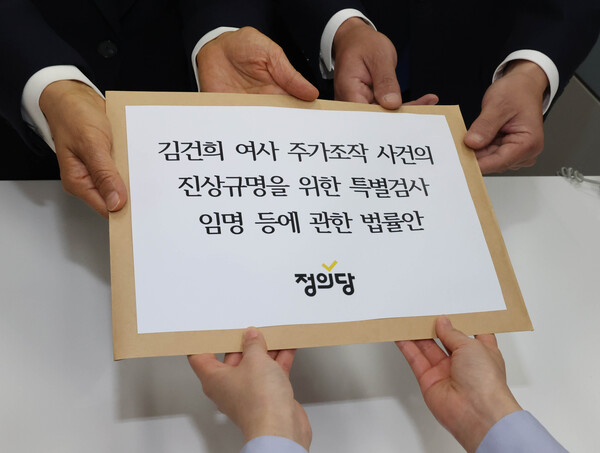 김건희 여사 주가조작 사건의
진상규명을 위한 특별검사
임명 등에 관한 법률안
정의당